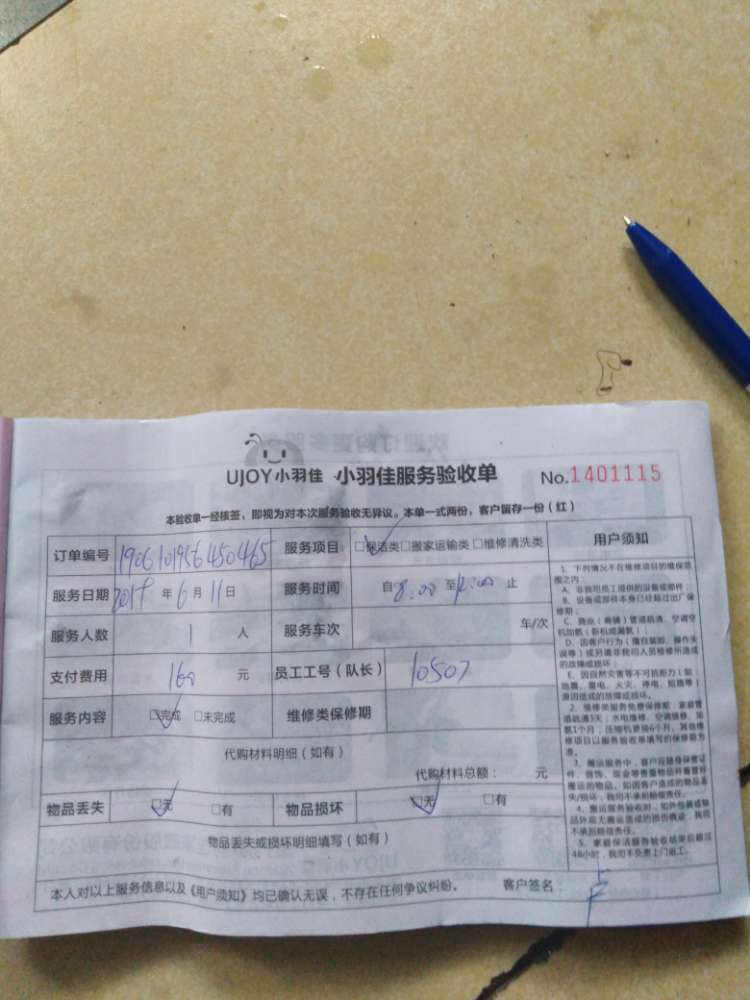 UJOY小羽佳 小羽佳服务验收单 No.1401115
本验收单一经核签，即视为对本次服务验收无异议。本单一式两份，客户留存一份（红）
订单编号 服务项目 □保洁类□搬家运输类□维修清洗类 用户须知
服务日期 2019年6月11日 服务时间 自8:00至12:00止
服务人数 1人 服务车次 车/次
支付费用 160元 员工工号（队长） 10507
服务内容 □完成 □未完成 维修类保修期
代购材料明细（如有）
代购材料总额： 元
物品丢失 □无 □有 物品损坏 □无 □有
物品丢失或损坏明细填写（如有）
本人对以上服务信息以及《用户须知》均已确认无误，不存在任何争议纠纷。 客户签名：
1、下列情况不在维修项目的维保范
围之内：
A、非我司员工提供的设备或部件；
B、设备或部件本身已经超过出厂保
修期；
C、商业（商铺）管道疏通、空调空
机加氨（新机或漏氨）；
D、因客户行为（擅自装卸、操作失
误等）或另请非我司人员检修所造成
的故障或损坏；
E、因自然灾害等不可抗拒力（如：
地震、雷电、火灾、停电、短路等）
原因造成的故障或损坏。
2、维修类服务免费保修期：家庭管
道疏通3天；水电维修、空调维修、加
氨1个月；压缩机更换6个月。其他维
修项目以服务验收单填写的保修期为
准。
3、搬运服务中，客户应随身保管证
件、首饰、现金等贵重物品并看管待
搬运的物品。如因客户造成的物品丢
失/损坏，我司不承担赔偿责任。
4、搬运服务验收时，如外包装或物
品外观无搬运造成的损伤痕迹，我司
不承担赔偿责任。
5、家庭保洁服务验收结束后超过
48小时，我司不负责上门返工。